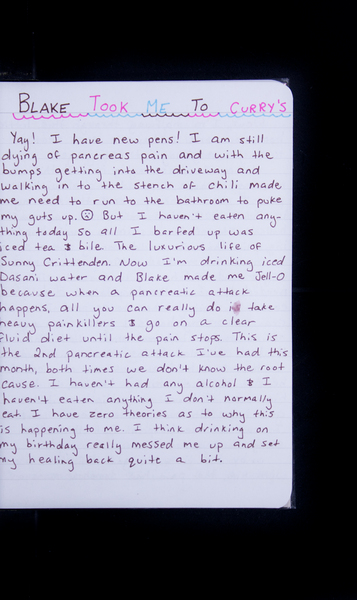 BLAKE TOOK ME TO CURRY'S
Yay! I have new pens! I am still
dying of pancreas pain and with the
bumps getting into the driveway and
walking in to the stench of chili made
me need to run to the bathroom to puke
my guts up. ☹ But I haven't eaten any-
thing today so all I barfed up was
iced tea & bile. The luxurious life of
Sunny Crittenden. Now I'm drinking iced
Dasani water and Blake made me Jell-O
because when a pancreatic attack
happens, all you can really do is take
heavy painkillers & go on a clear
fluid diet until the pain stops. This is
the 2nd pancreatic attack I've had this
month, both times we don't know the root
cause. I haven't had any alcohol & I
haven't eaten anything I don't normally
eat. I have zero theories as to why this
is happening to me. I think drinking on
my birthday really messed me up and set
my healing back quite a bit.